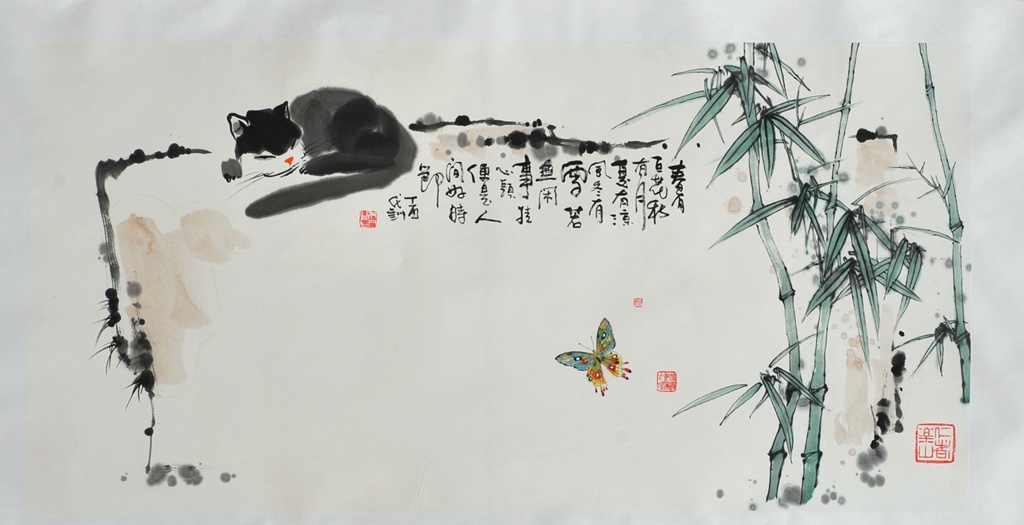 春有
百花秋
有月
夏有涼
風冬有
雪若
無闲
事挂
心頭
便是人
间好時
節
丁酉
仁者
樂山